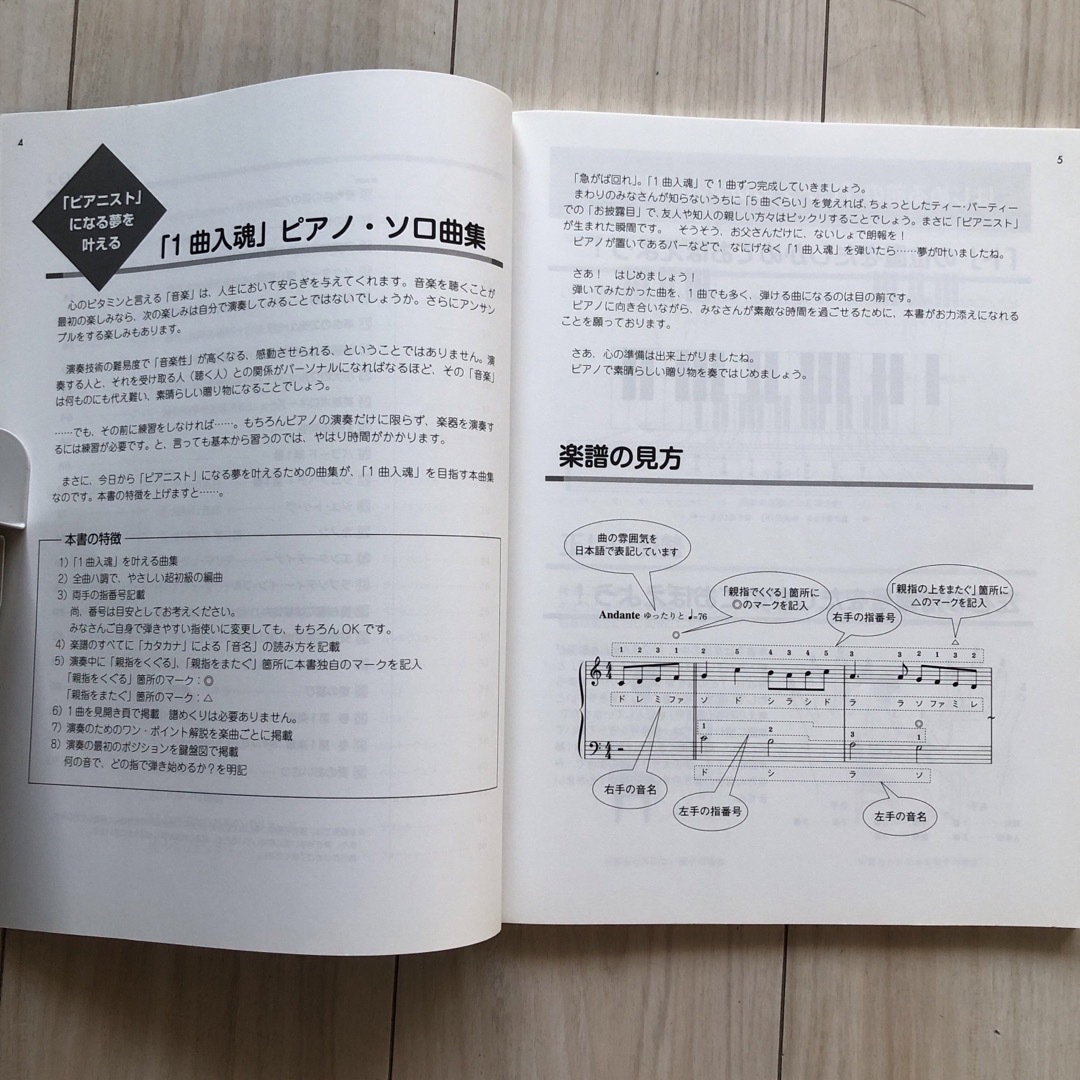 4
「ピアニスト」
になる夢を
叶える
「1曲入魂」ピアノ・ソロ曲集
心のビタミンと言える「音楽」は、人生において安らぎを与えてくれます。音楽を聴くことが
最初の楽しみなら、次の楽しみは自分で演奏してみることではないでしょうか。さらにアンサン
ブルをする楽しみもあります。
演奏技術の難易度で「音楽性」が高くなる、感動させられる、ということではありません。演
奏する人と、それを受け取る人（聴く人）との関係がパーソナルになればなるほど、その「音楽」
は何ものにも代え難い、素晴らしい贈り物になることでしょう。
……でも、その前に練習をしなければ……。もちろんピアノの演奏だけに限らず、楽器を演奏す
るには練習が必要です。と、言っても基本から習うのでは、やはり時間がかかります。
まさに、今日から「ピアニスト」になる夢を叶えるための曲集が、「1曲入魂」を目指す本曲集
なのです。本書の特徴を上げますと……。
本書の特徴
1）「1曲入魂」を叶える曲集
2）全曲ハ調で、やさしい超初級の編曲
3）両手の指番号記載
尚、番号は目安としてお考えください。
みなさんご自身で弾きやすい指使いに変更しても、もちろんOKです。
4）楽譜のすべてに「カタカナ」による「音名」の読み方を記載
5）演奏中に「親指をくぐる」、「親指をまたぐ」箇所に本書独自のマークを記入
「親指をくぐる」箇所のマーク：◎
「親指をまたぐ」箇所のマーク：△
6）1曲を見開き頁で掲載　譜めくりは必要ありません。
7）演奏のためのワン・ポイント解説を楽曲ごとに掲載
8）演奏の最初のポジションを鍵盤図で掲載
何の音で、どの指で弾き始めるか？を明記
5
「急がば回れ」。「1曲入魂」で1曲ずつ完成していきましょう。
まわりのみなさんが知らないうちに「5曲ぐらい」を覚えれば、ちょっとしたティー・パーティー
での「お披露目」で、友人や知人の親しい方々はビックリすることでしょう。まさに「ピアニスト」
が生まれた瞬間です。　そうそう、お父さんだけに、ないしょで朗報を！
ピアノが置いてあるバーなどで、なにげなく「1曲入魂」を弾いたら……夢が叶いましたね。
さあ！　はじめましょう！
弾いてみたかった曲を、1曲でも多く、弾ける曲になるのは目の前です。
ピアノに向き合いながら、みなさんが素敵な時間を過ごせるために、本書がお力添えになれる
ことを願っております。
さあ、心の準備は出来上がりましたね。
ピアノで素晴らしい贈り物を奏ではじめましょう。
楽譜の見方
曲の雰囲気を
日本語で表記しています
「親指でくぐる」箇所に
◎のマークを記入
「親指の上をまたぐ」箇所に
△のマークを記入
右手の指番号
Andante ゆったりと ♩=76
◎ △
1 2 3 1 2 5 4 3 4 5 3 3 2 1 3 2
ド レ ミ ファ ソ ド シ ラ シ ド ラ ラ ソ ファ ミ レ
1 2 3 1
◎
ド シ ラ ソ
右手の音名
左手の指番号
左手の音名